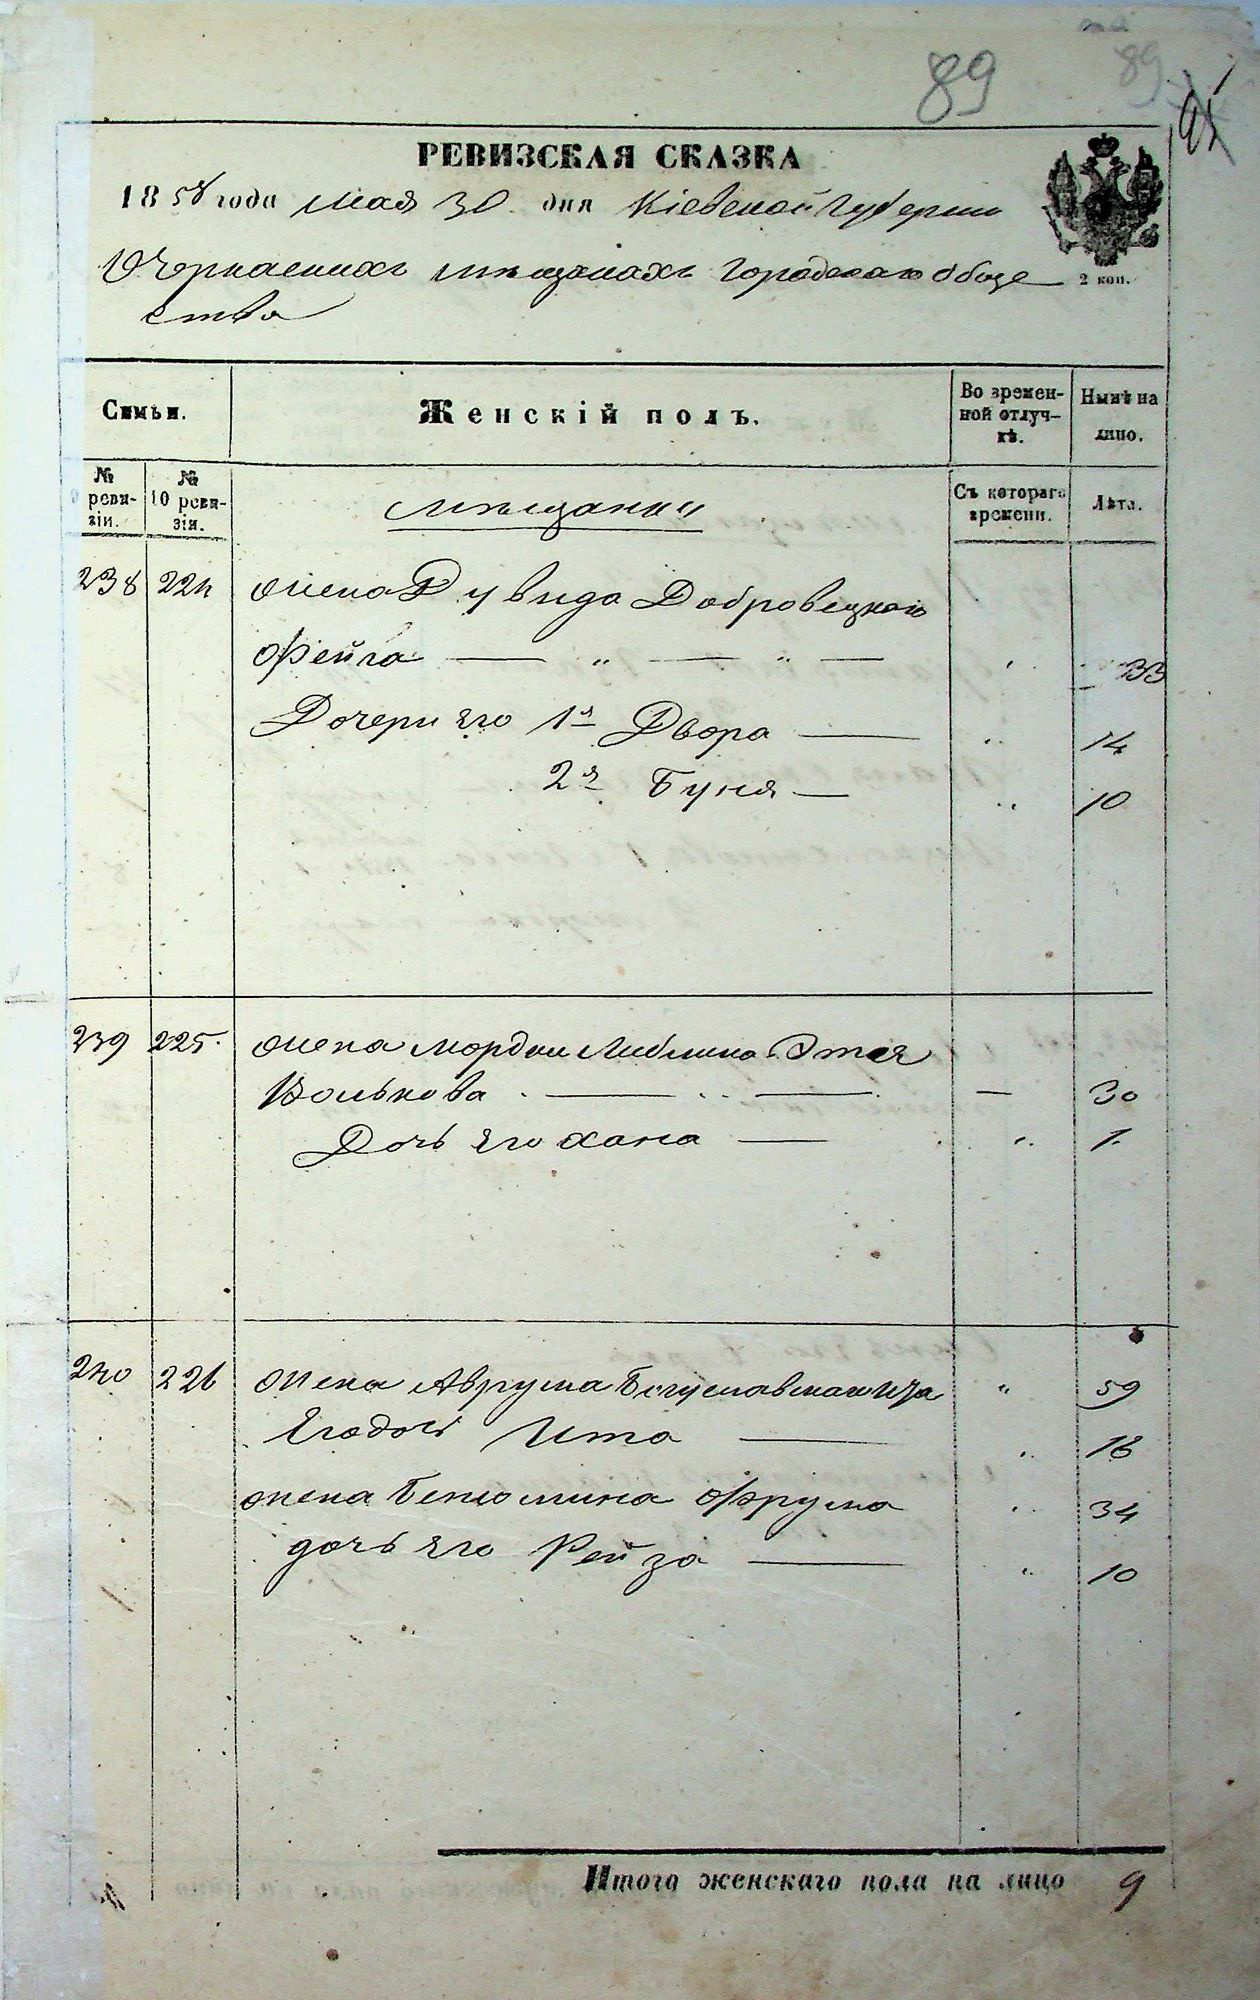 89
89
РЕВИЗСКАЯ СКАЗКА
1858 года Мая 30 дня Кіевской Губерніи
О Черкасскихъ мѣщанахъ Городскаго Обще
ства
2 коп.
Семьи.
Женскій полъ.
Во времен-
ной отлуч-
кѣ.
Нынѣ на
лицо.
№
9 реви-
зіи.
№
10 реви-
зіи.
Мѣщанки
Съ котораго
времени.
Лѣта.
238 224 Жена Дувида Добровецкаго
Фейга — " — " — 33
Дочери его 1я Двора — 14
2я Буня — 10
239 225. Жена Мордки Либмана Этля
Волькова — — — 30
Дочь его Хана — 1.
240 226 Жена Аврума Богуславскаго 59
Его дочь Ита — 16
жена Бенюмина Фрума 34
дочь его Рейза — 10
Итого женскаго пола на лицо 9